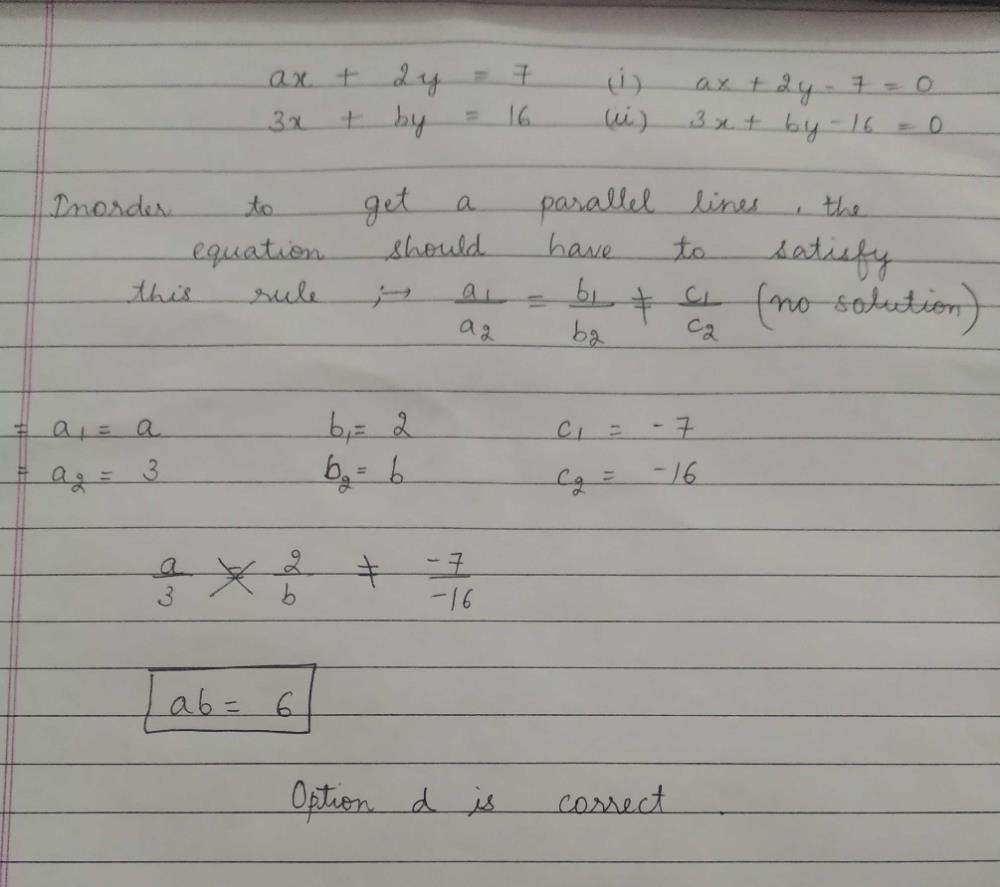 ax + 2y = 7 (i) ax + 2y - 7 = 0
3x + by = 16 (ii) 3x + by - 16 = 0
Inorder to get a parallel lines, the
equation should have to satisfy
this rule ;→ a₁/a₂ = b₁/b₂ ≠ c₁/c₂ (no solution)
= a₁ = a b₁ = 2 c₁ = -7
= a₂ = 3 b₂ = b c₂ = -16
a/3 = 2/b ≠ -7/-16
ab = 6
Option d is correct.